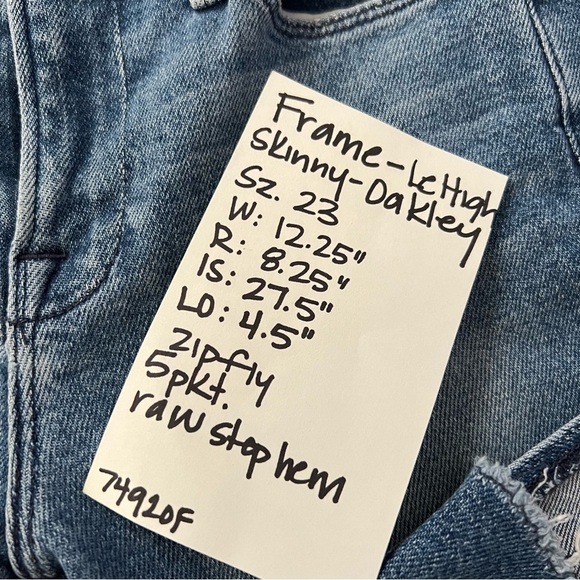 Frame-Le High
Skinny-Oakley
Sz. 23
W: 12.25"
R: 8.25"
IS: 27.5"
LO: 4.5"
zip fly
5pkt.
raw step hem
74920F